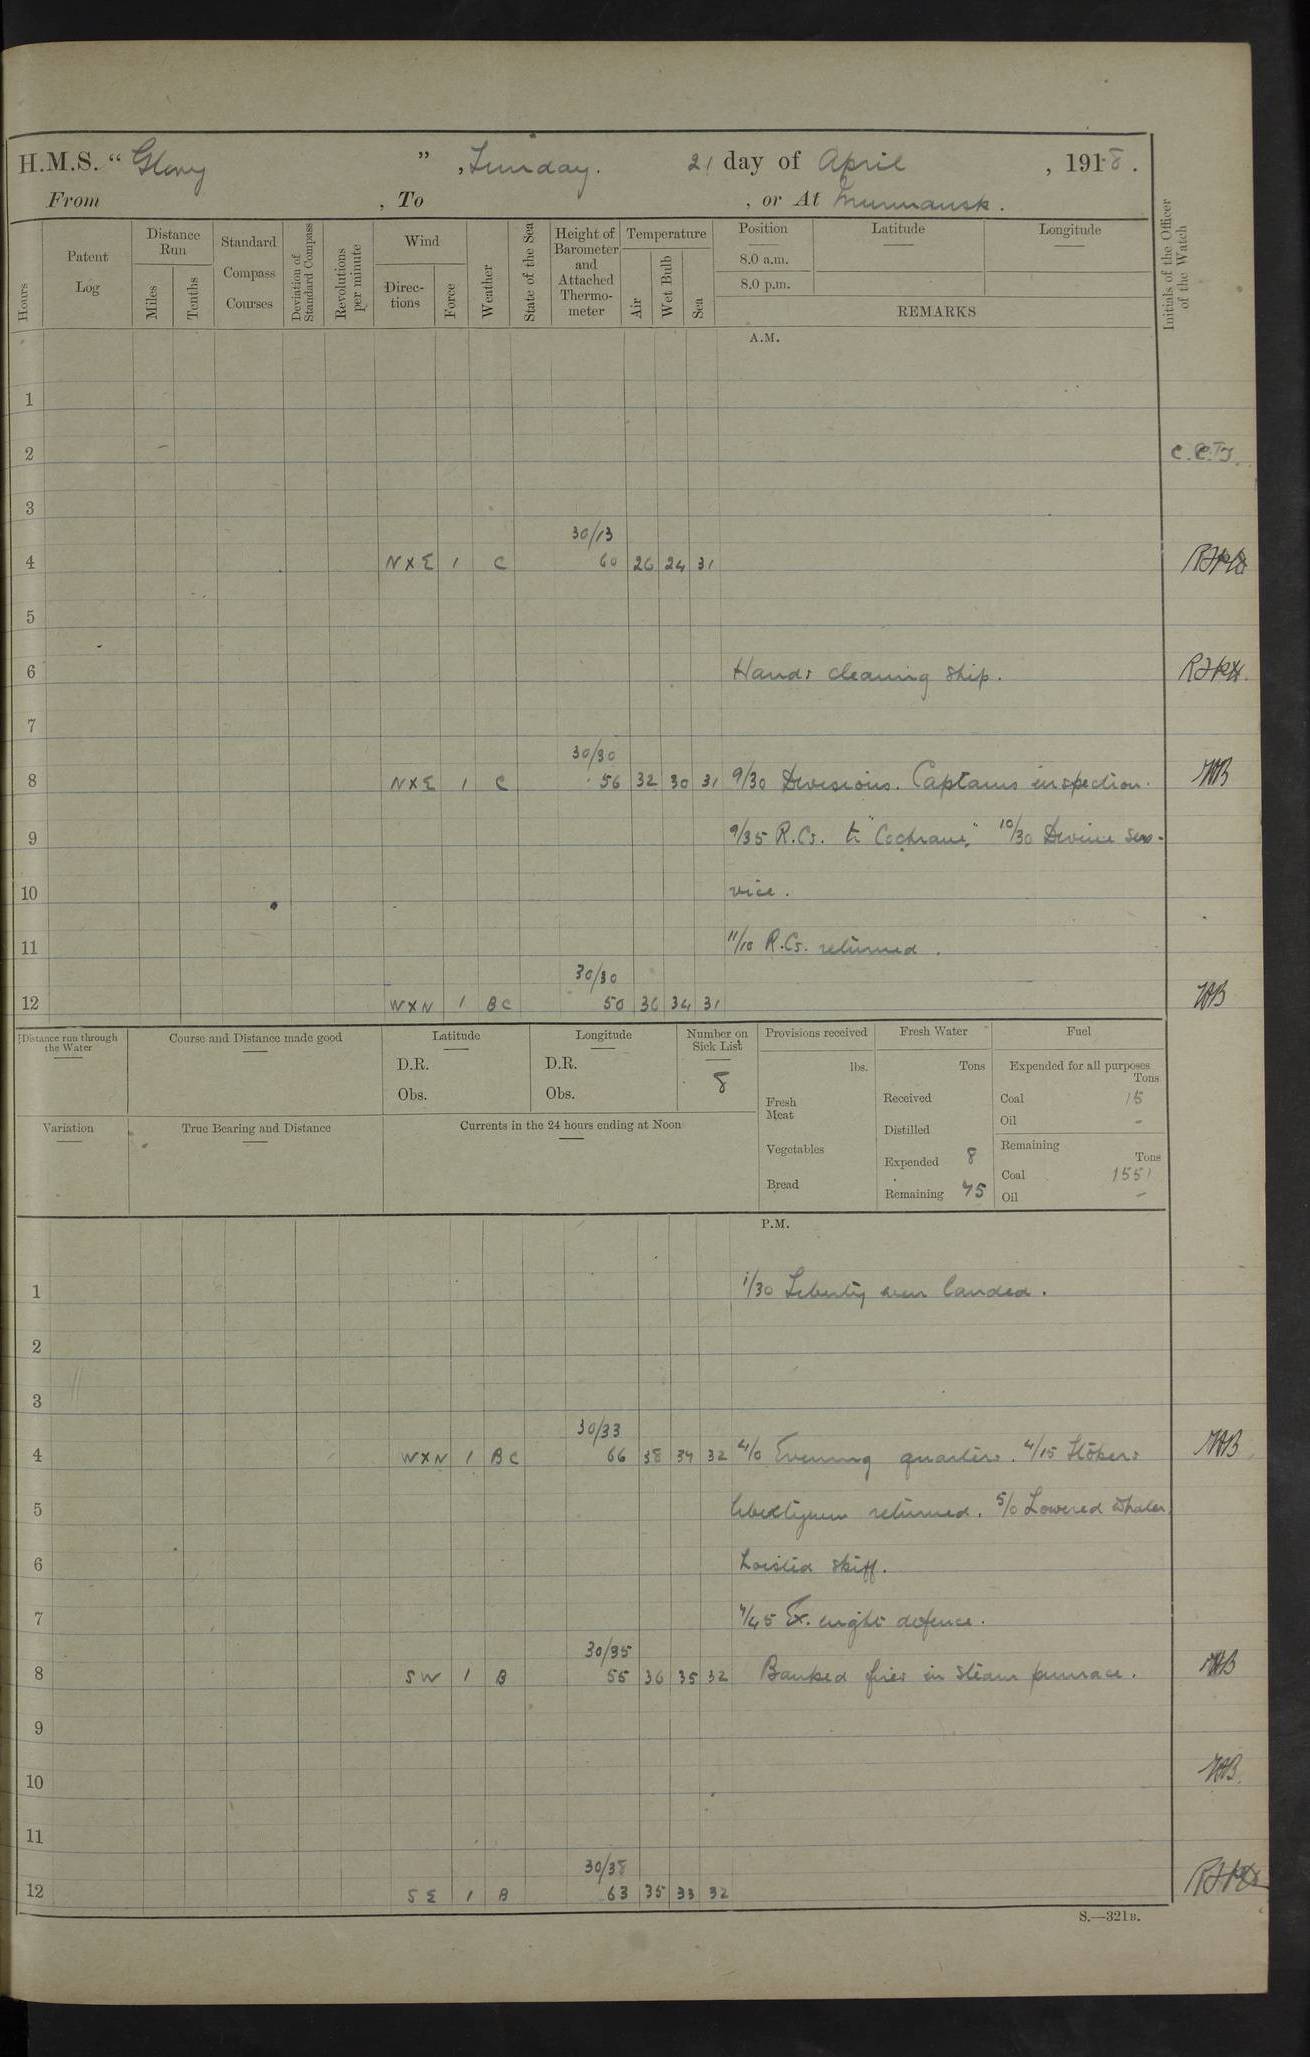 H.M.S. " Glory " , Sunday. 21 day of April , 1918 .
From , To , or At Murmansk .
Hours
Patent Log
Distance Run
Miles
Tenths
Standard Compass Courses
Deviation of Standard Compass
Revolutions per minute
Wind
Direc-tions
Force
Weather
State of the Sea
Height of Barometer and Attached Thermo-meter
Temperature
Air
Wet Bulb
Sea
Position
8.0 a.m.
8.0 p.m.
Latitude
Longitude
REMARKS
Initials of the Officer of the Watch
A.M.
1
2
3
30/13
4 N X E 1 C 60 26 24 31
5
6 Hands cleaning ship.
7
30/30
8 N X E 1 C 56 32 30 31 9/30 Divisions. Captains inspection.
9 9/35 R.Cs. to "Cochrane." 10/30 Divine Ser-
10 vice.
11 11/10 R.Cs. returned.
30/30
12 W X N 1 BC 50 36 34 31
Distance run through the Water
Course and Distance made good
Latitude
D.R.
Obs.
Longitude
D.R.
Obs.
Number on Sick List
8
Variation
True Bearing and Distance
Currents in the 24 hours ending at Noon
Provisions received
lbs.
Fresh Meat
Vegetables
Bread
Fresh Water
Tons
Received
Distilled
Expended 8
Remaining 75
Fuel
Expended for all purposes
Tons
Coal 15
Oil -
Remaining
Tons
Coal 1551
Oil -
P.M.
1 1/30 Liberty men landed.
2
3
30/33
4 W X N 1 BC 66 38 34 32 4/0 Evening quarters. 4/15 Stokers
5 libertymen returned. 5/0 Lowered whaler,
6 hoisted skiff.
7 7/45 Ex. night defence.
30/35
8 SW 1 B 55 36 35 32 Banked fires in steam pinnace.
9
10
11
30/38
12 SE 1 B 63 35 33 32
S.—321B.